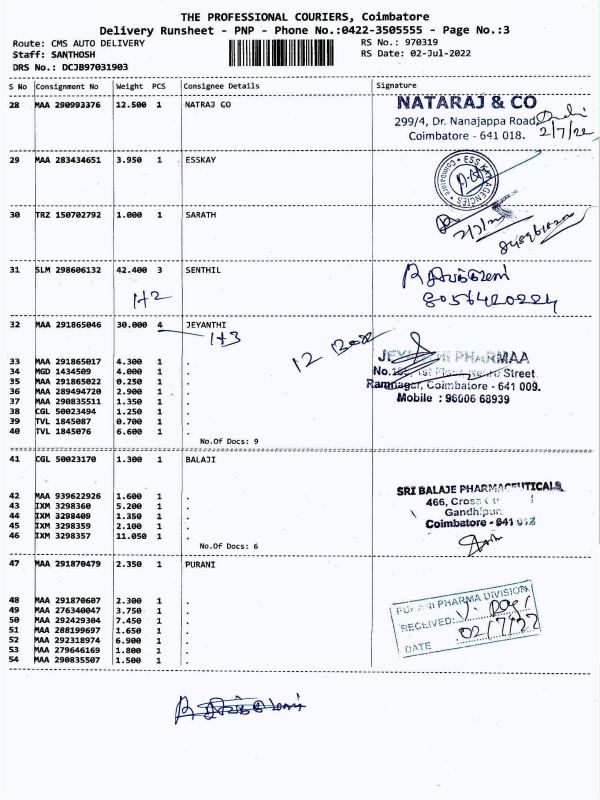 THE PROFESSIONAL COURIERS, Coimbatore
Delivery Runsheet - PNP - Phone No.:0422-3505555 - Page No.:3
Route: CMS AUTO DELIVERY RS No.: 970319
Staff: SANTHOSH RS Date: 02-Jul-2022
DRS No.: DCJB97031903
S No Consignment No Weight PCS Consignee Details Signature
28 MAA 290993376 12.500 1 NATRAJ CO
NATARAJ & CO
299/4, Dr. Nanajappa Road,
Coimbatore - 641 018.
2/7/22
29 MAA 283434651 3.950 1 ESSKAY
ESS KAY AGENCIES
Coimbatore
30 TRZ 150702792 1.000 1 SARATH
31 SLM 298606132 42.400 3 SENTHIL
1+2
8056420224
32 MAA 291865046 30.000 4 JEYANTHI
1+3
12 Box
33 MAA 291865017 4.300 1 .
34 MGD 1434509 4.000 1 .
35 MAA 291865022 0.250 1 .
36 MAA 289494720 2.900 1 .
37 MAA 290835511 1.350 1 .
38 CGL 50023494 1.250 1 .
39 TVL 1845087 0.700 1 .
40 TVL 1845076 6.600 1 .
PHARMAA
Street
Ramnagar, Coimbatore - 641 009.
Mobile : 96006 68939
No.Of Docs: 9
41 CGL 50023170 1.300 1 BALAJI
42 MAA 939622926 1.600 1 .
43 IXM 3298360 5.200 1 .
44 IXM 3298409 1.350 1 .
45 IXM 3298359 2.100 1 .
46 IXM 3298357 11.050 1 .
SRI BALAJE PHARMACEUTICALS
466, Cross
Gandhipuram
Coimbatore - 641 012
No.Of Docs: 6
47 MAA 291870479 2.350 1 PURANI
48 MAA 291870607 2.300 1 .
49 MAA 276340047 3.750 1 .
50 MAA 292429304 7.450 1 .
51 MAA 288199697 1.650 1 .
52 MAA 292318974 6.900 1 .
53 MAA 279646169 1.800 1 .
54 MAA 290835507 1.500 1 .
PURANI PHARMA DIVISION
RECEIVED:
DATE 02/7/22